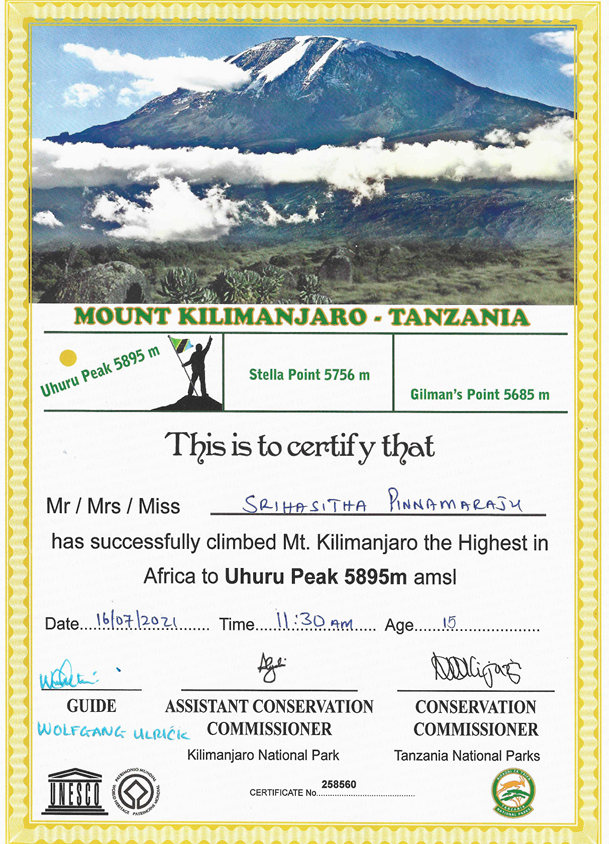 MOUNT KILIMANJARO - TANZANIA
Uhuru Peak 5895 m
Stella Point 5756 m
Gilman's Point 5685 m
This is to certify that
Mr / Mrs / Miss SRIHASITHA PINNAMARAJU
has successfully climbed Mt. Kilimanjaro the Highest in
Africa to Uhuru Peak 5895m amsl
Date....16/07/2021.......... Time.....11:30 AM...... Age.......15..................
GUIDE
WOLFGANG ULRICK
ASSISTANT CONSERVATION
COMMISSIONER
Kilimanjaro National Park
CONSERVATION
COMMISSIONER
Tanzania National Parks
UNESCO
PATRIMONIO MUNDIAL
WORLD HERITAGE
PATRIMOINE MONDIAL
CERTIFICATE No. 258560